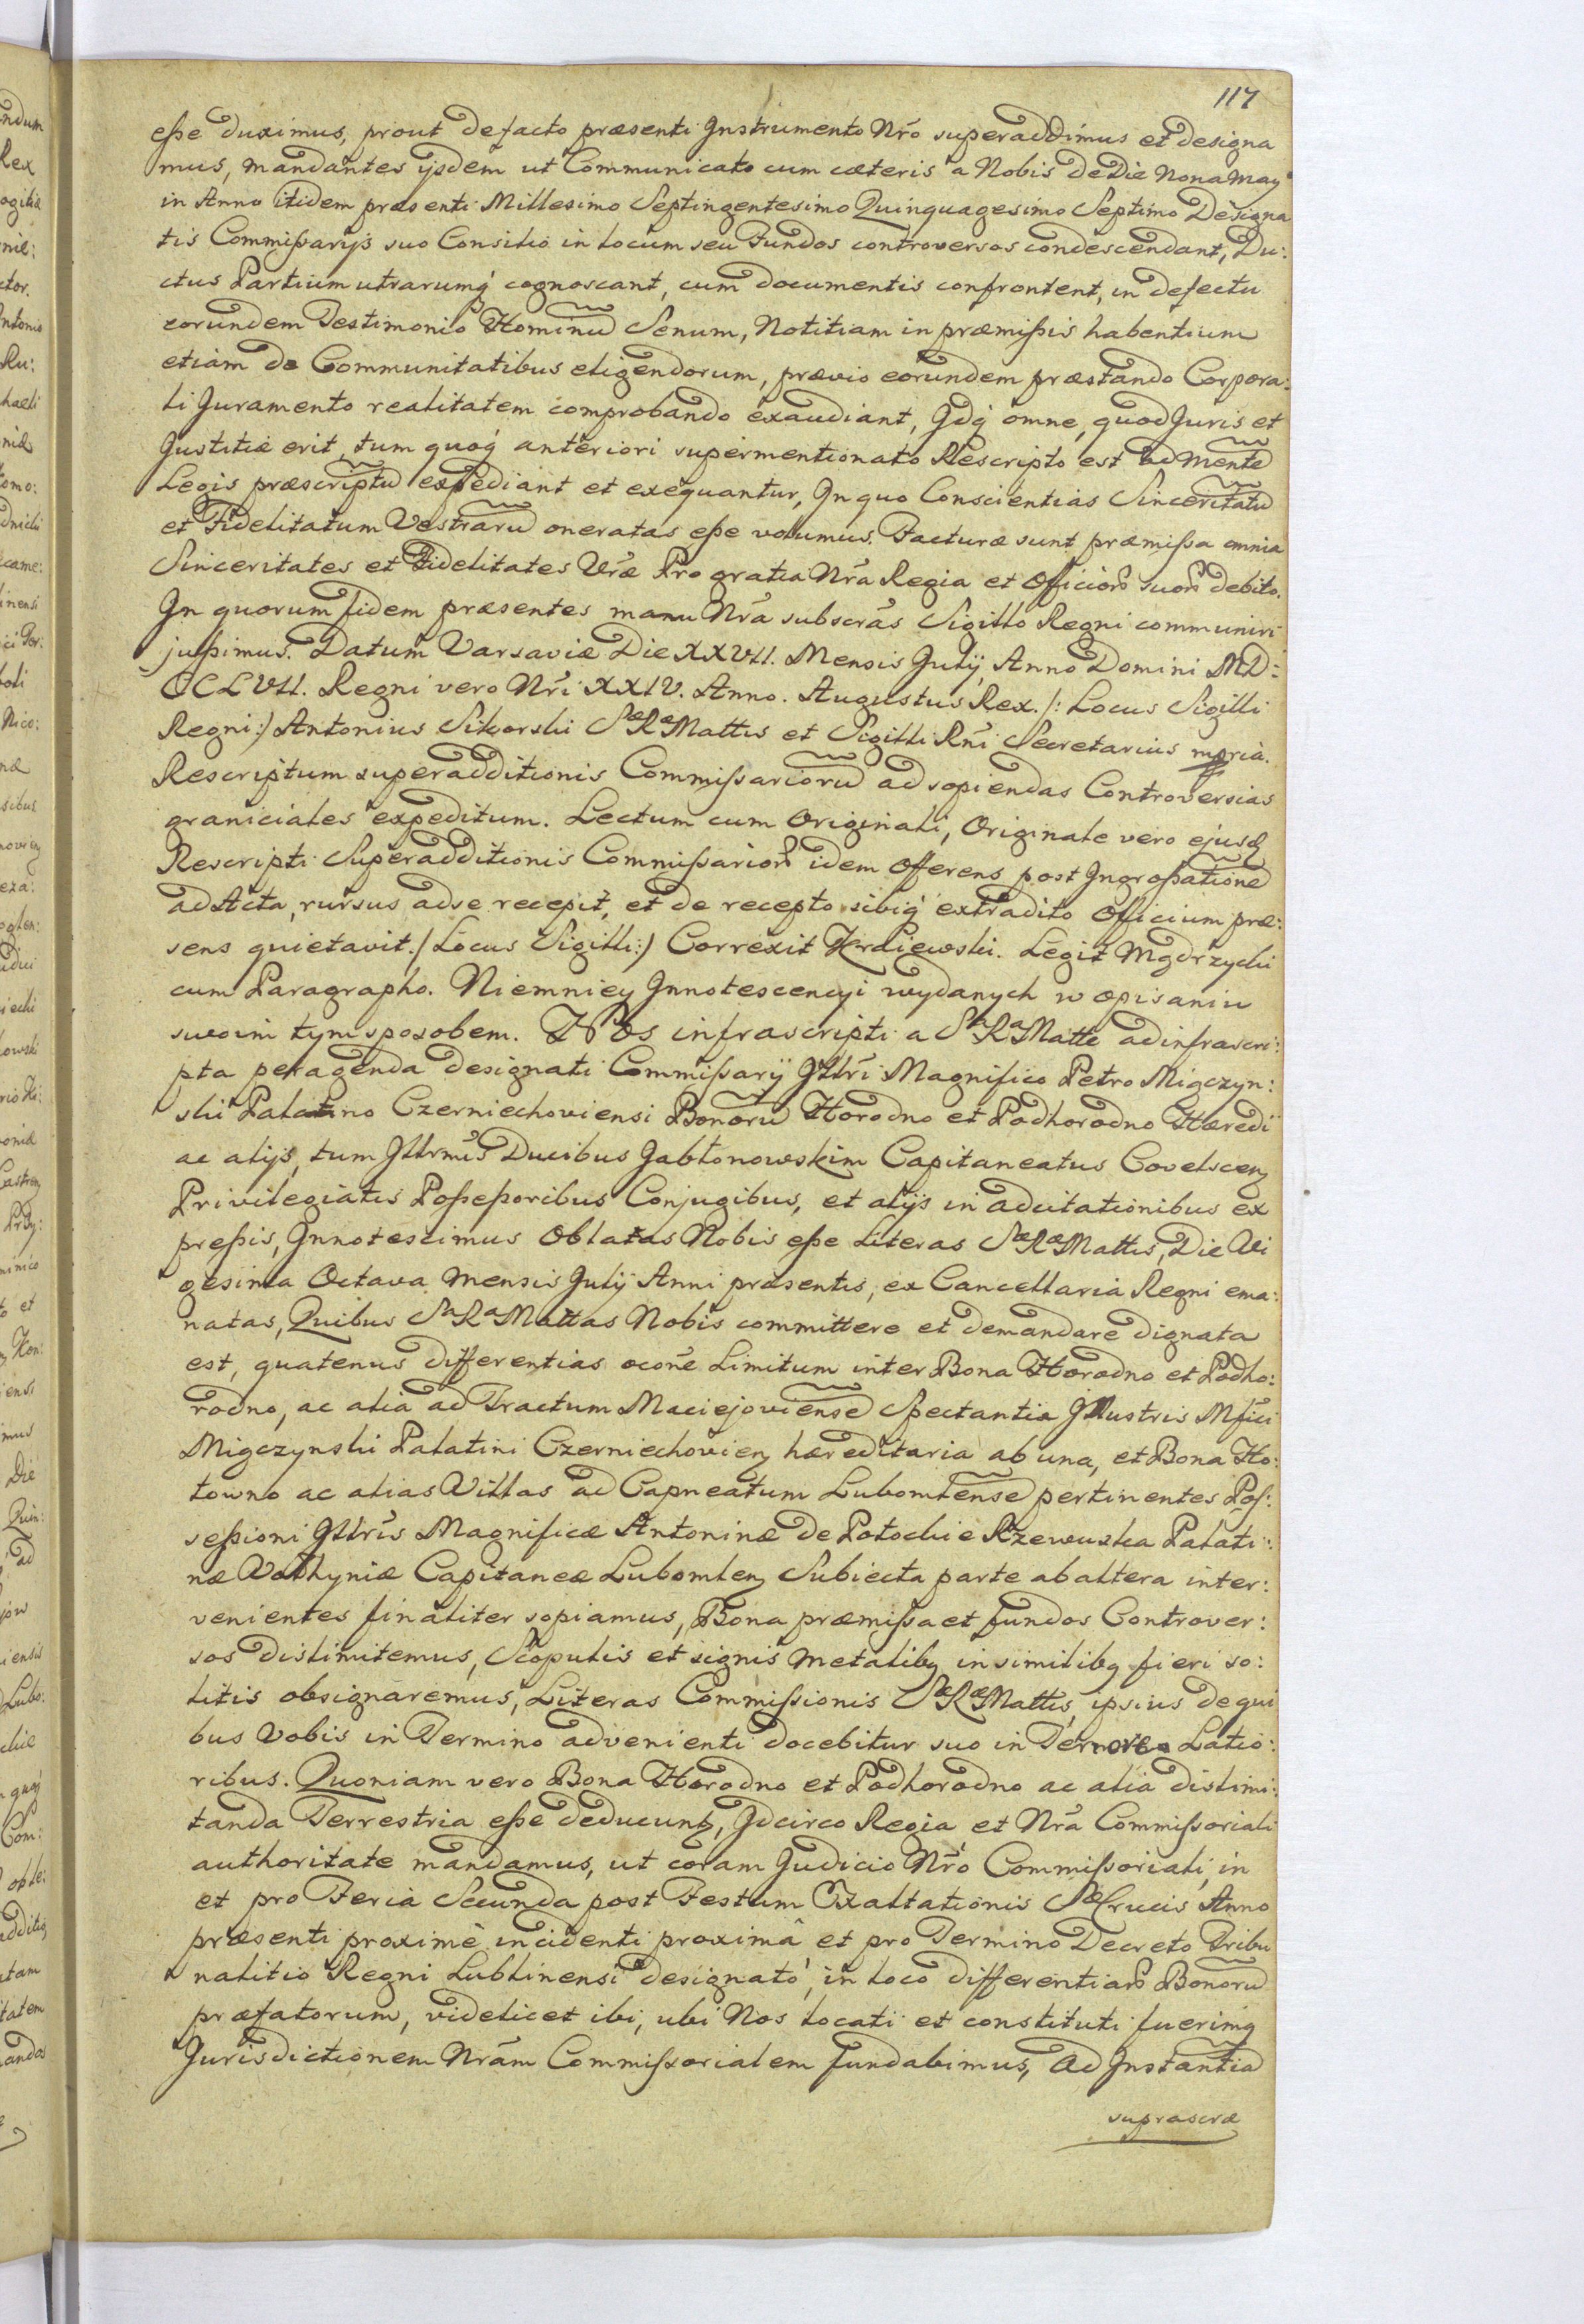 117
eſse duximus, prout defacto præsenti Instrumento Nro superaddimus et designa
mus, mandantes ijsdem ut Communicato cum cæteris a Nobis de Die Nona May
in Anno itidem præsenti Millesimo Septingentesimo Quinquagesimo Septimo Designa
tis Commiſsarijs suo Consilio in locum seu Fundos controversos condescendant, Du:
ctus Partium utrarumq cognoscant, cum documentis confrontent, in defectu
eorundem Testimonio Hominu Senum, Notitiam in præmiſsis habentium
etiam de Communitatibus eligendorum, prævio eorundem præstando Corpora:
li Juramento realitatem comprobando exaudiant, Idq omne, quod Juris et
Justitiæ erit, tum quoq anteriori supermentionato Rescripto est ad mente
Legis præscriptu expediant et exequantur, In quo Conscientias Sinceritatu
et Fidelitatum Vestraru oneratas eſse volumus. Facturæ sunt præmiſsa omnia
Sinceritates et Fidelitates Vræ Pro gratia Nra Regia et Officior suor debito.
In quorum fidem præsentes manu Nra subscras Sigillo Regni communiri
juſsimus. Datum Varsaviæ Die XXVII. Mensis Julij, Anno Domini MD:
CCLVII. Regni vero Nri XXIV. Anno. Augustus Rex. /: Locus Sigilli
Regni:/ Antonius Sikorski SæRæMattis et Sigilli Rni Secretarius mpria.
Rescriptum superadditionis Commiſsarioru ad sopiendas Controversias
graniciales expeditum. Lectum cum Originali, Originale vero ejusd
Rescripti Superadditionis Commiſsarior idem Offerens post Ingroſsatione
ad Acta, rursus ad se recepit, et de recepto sibiq extradito Officium præ:
sens quietavit. /Locus Sigilli:/ Correxit Hrdiewski. Legit Mgdrzycki
cum Paragrapho. Niemniey Innotescencyi wydanych w opisaniu
swoim tym sposobem. Nos infrascripti a SaRaMatte ad infrascri:
pta peragenda designati Commiſsarij Illri Magnifico Petro Miączyn:
ski Palatino Czerniechoviensi Bonoru Horodno et Podhorodno Hæredi
ac alijs, tum Illrmis Ducibus Jabłonowskim Capitaneatus Covelscen
Privilegiatis Poſseſsoribus Conjugibus, et alijs in adcitationibus ex
preſsis, Innotescimus Oblatas Nobis eſse Literas SæRæMattis, Die Vi
gesima Octava Mensis Julij Anni præsentis, ex Cancellaria Regni ema:
natas, Quibus SaRaMattas Nobis committere et demandare dignata
est, quatenus differentias ocone Limitum inter Bona Horodno et Podho:
rodno, ac alia ad Tractum Maciejoviense Spectantia Illustris Mfici
Miączynski Palatini Czerniechovien hæreditaria ab una, et Bona Ho:
lowno ac alias Villas ad Capneatum Lubomlense pertinentes Poſ:
seſsioni Illris Magnificæ Antoninæ de Potockie Rzewuska Palati:
næ Volhyniæ Capitaneæ Lubomlen Subiecta parte ab altera inter:
venientes finaliter sopiamus, Bona præmiſsa et fundos Controver:
sos dislimitemus, Scopulis et signis metalibq in similibq fieri so:
litis obsignaremus, Literas Commiſsionis SæRæMattis, ipsius de qui
bus Vobis in Termino advenienti docebitur suo in Tenore Latio:
ribus. Quoniam vero Bona Horodno et Podhorodno ac alia dislimi:
tanda Terrestria eſse deducunt, Idcirco Regia et Nra Commiſsoriali
authoritate mandamus, ut coram Judicio Nro Commiſsoriali, in
et pro Feria Secunda post Festum Exaltationis SæCrucis Anno
præsenti proximè incidenti proximâ et pro Termino Decreto Tribu
nalitio Regni Lublinensi designato, in loco differentiar Bonoru
præfatorum, videlicet ibi, ubi Nos locati et constituti fuerimq
Jurisdictionem Nram Commiſsorialem fundabimus, Ad Instantia
suprascræ